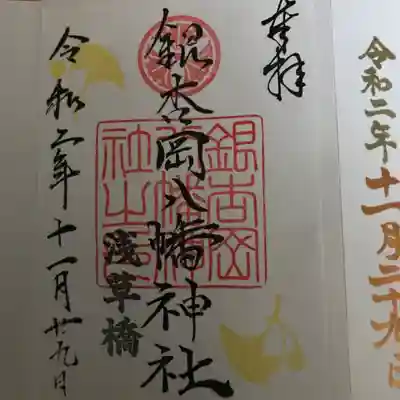 奉拝
銀杏岡八幡神社
浅草橋
令和二年十一月廿九日
令和二年十一月二十九日